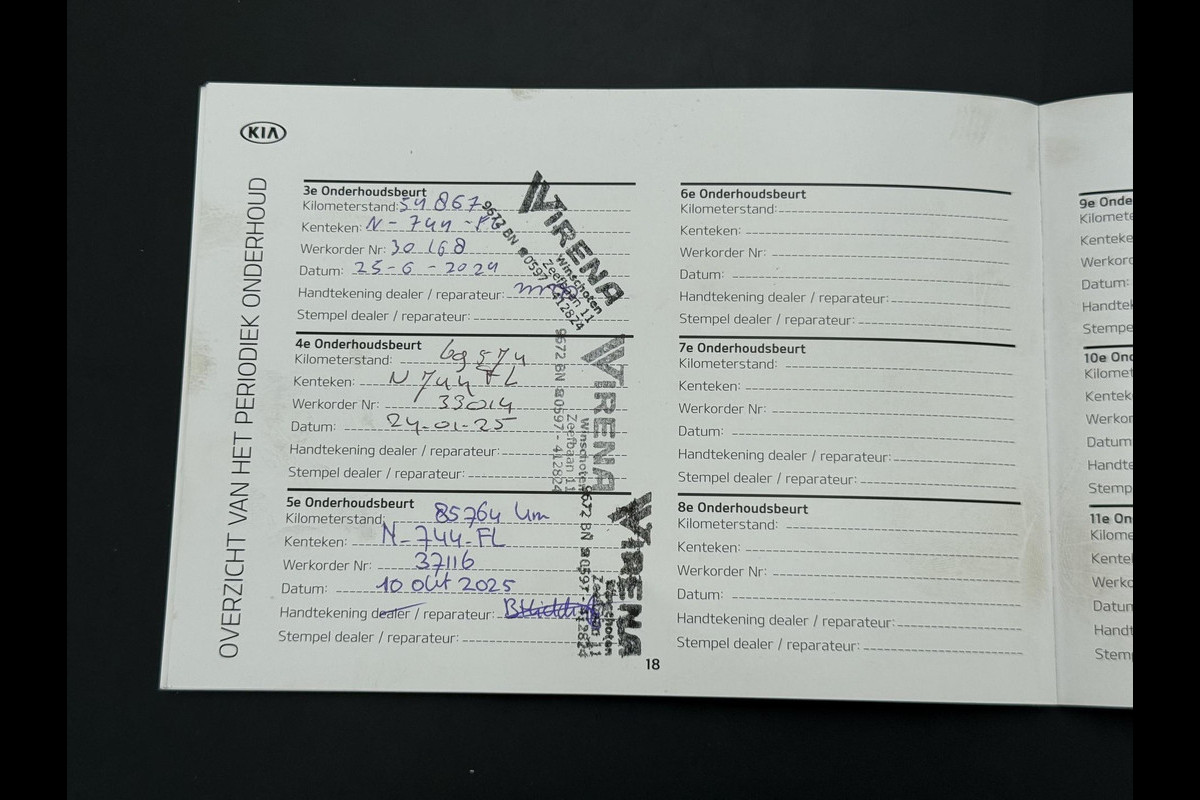 KIA
OVERZICHT VAN HET PERIODIEK ONDERHOUD
3e Onderhoudsbeurt
Kilometerstand: 54867
Kenteken: N-744-
Werkorder Nr: 30168
Datum: 25-6-2024
Handtekening dealer / reparateur:
Stempel dealer / reparateur:
VIRENA
Winschoten
Zeefbaan 11
9672 BN ☎0597-412824
4e Onderhoudsbeurt
Kilometerstand: 69574
Kenteken: N 744 FL
Werkorder Nr: 33014
Datum: 24-01-25
Handtekening dealer / reparateur:
Stempel dealer / reparateur:
VIRENA
Winschoten
Zeefbaan 11
9672 BN ☎0597-412824
5e Onderhoudsbeurt
Kilometerstand: 85764 km
Kenteken: N-744-FL
Werkorder Nr: 37116
Datum: 10 okt 2025
Handtekening dealer / reparateur:
Stempel dealer / reparateur:
VIRENA
Winschoten
Zeefbaan 11
9672 BN ☎0597-412824
6e Onderhoudsbeurt
Kilometerstand:
Kenteken:
Werkorder Nr:
Datum:
Handtekening dealer / reparateur:
Stempel dealer / reparateur:
7e Onderhoudsbeurt
Kilometerstand:
Kenteken:
Werkorder Nr:
Datum:
Handtekening dealer / reparateur:
Stempel dealer / reparateur:
8e Onderhoudsbeurt
Kilometerstand:
Kenteken:
Werkorder Nr:
Datum:
Handtekening dealer / reparateur:
Stempel dealer / reparateur:
18
9e Onde
Kilomete
Kenteke
Werkord
Datum:
Handtek
Stempe
10e Ond
Kilomet
Kentek
Werkor
Datum
Handte
Stemp
11e On
Kilome
Kentel
Werkc
Datun
Handt
Stem